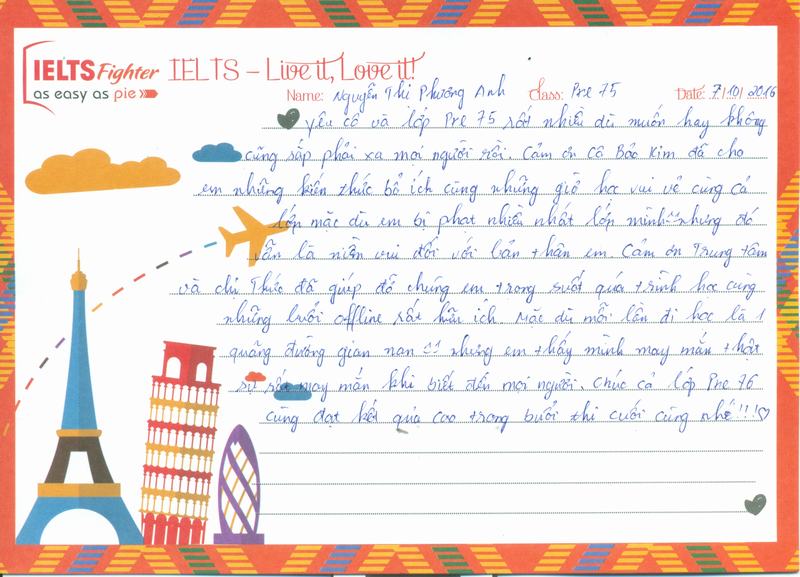 IELTS Fighter
as easy as pie
IELTS – Live it, Love it!
Name: Nguyễn Thị Phương Anh Class: Pre 75 Date: 7/10/2016
yêu cô và lớp Pre 75 rất nhiều dù muốn hay không
cũng sắp phải xa mọi người rồi. Cảm ơn cô Bảo Kim đã cho
em những kiến thức bổ ích cùng những giờ học vui vẻ cùng cả
lớp mặc dù em bị phạt nhiều nhất lớp mình ^^ nhưng đó
vẫn là niềm vui đối với bản thân em. Cảm ơn Trung tâm
và chị Thức đã giúp đỡ chúng em trong suốt quá trình học cùng
những buổi offline rất hữu ích. Mặc dù mỗi lần đi học là 1
quãng đường gian nan ^^ nhưng em thấy mình may mắn thật
sự rất may mắn khi biết đến mọi người. Chúc cả lớp Pre 76
cùng đạt kết quả cao trong buổi thi cuối cùng nhé!!!♡